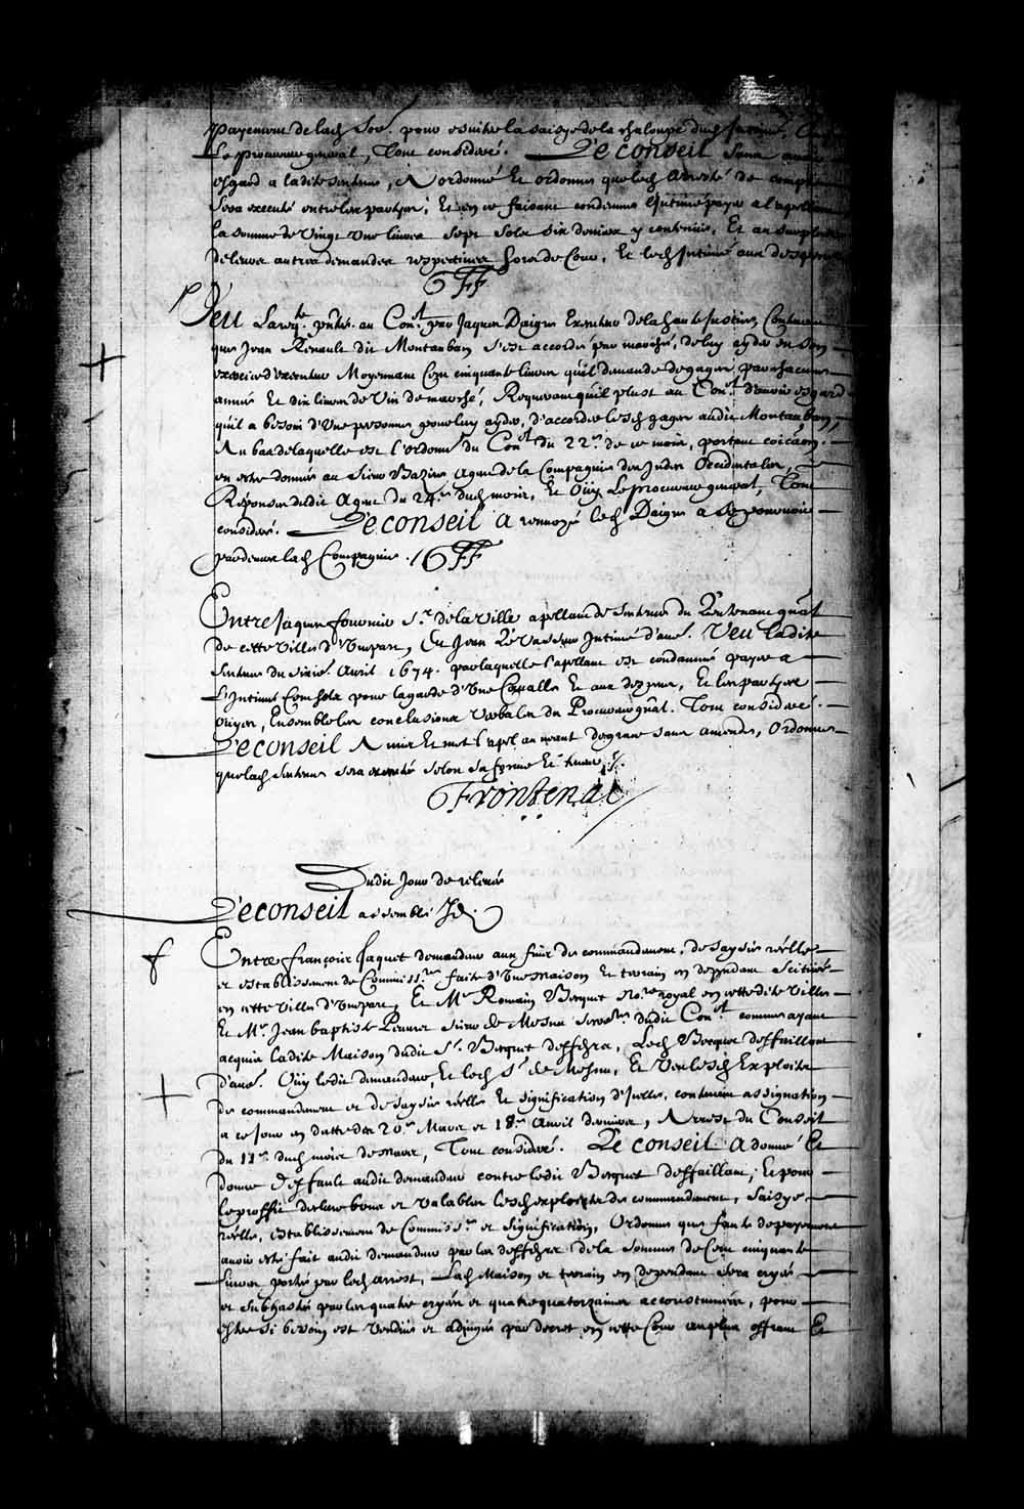 payement de lad. Som. pour ensuitte la saisye de la chaloupe dud. Intimé,
Le procureur general, Tout consideré. Le conseil sans avoir
esgard a ladite sentence, A ordonné Et ordonne que led. Arresté de compte
sera executé entre les partyes; Et en ce faisant condemne l'Intimé payer a l'apellant
la somme de vingt une livres sept sols six deniers y contenüe, Et au surplus
de leurs autres demandes respectives hors de Cour, Et led. Intimé aux despens
FF
Veu la req.te pñtée au Con.l par Jaques Daigre Executeur de la haute Justice, Contenant
que Jean Renault dit Montauban s'est accordé par marché, de luy ayder en son
exercice d'executeur Moyennant Cent cinquante livres qu'il demande de gages par chacune
année Et dix livres de vin de marché, Requerant qu'il plust au Con.l d'avoir esgard
qu'il a besoin d'une personne pour luy ayder, d'accorder lesd. gages audit Montauban,
Au bas de laquelle est l'ordonn.e du Con.l du 22.e de ce mois, portant coicãon
en estre donnée au Sieur Bazire Agent de la Compagnie des Indes Occidentales,
Response dudit Agent du 24.e dud. mois, Et Oüy Le procureur general, Tout
consideré. Le conseil A renvoyé led. Daigre a se pourvoir
pardevers lad. Compagnie. FF
Entre Jaques fournier S.r de la Ville apellant de sentence du Lieutenant gñal
de cette Ville d'Une part, Et Jean Le Vasseur Intimé d'aue. Veu Ladite
sentence du sixie. Avril 1674. par laquelle l'apellant est condamné payer a
L'Intimé Cent sols pour la garde d'Une Cavalle Et aux despens, Et les partyes
ouyes, Ensemble les conclusions Verbales du Procureur gñal. Tout consideré.
Le conseil A mis Et met l'apel au neant de grace sans amende, Ordonne
que lad. sentence sera executée selon sa forme Et teneur
Frontenac
Dudit Jour de relevée
Le conseil assemblé
Entre françois Jaquet demandeur aux fins de commandement, de saysie réelle
et establissement de Commiss.re faite d'Une maison Et terrain en dependant scituée
en cette Ville d'Une part, Et M.e Romain Becquet No.re royal en cette dite Ville
Et M.e Jean baptiste Peuvret Sieur de Mesnu Secre.re dudit Con.l comme ayant
acquis ladite Maison dudit S.r Becquet deffẽrs, Led. Becquet deffaillant
d'aue. Oüy ledit demandeur, Et led. S.r de Mesnu, Et Veu lesd. Exploits
de commandement et de saysie réelle Et signification d'Icelle, contenant assignation
a ce Jour en datte des 20.e Mars et 18.e Avril dernier, Arrest du Conseil
du 11.e dud. mois de Mars, Tout consideré. Le conseil A donné Et
donne deffault audit demandeur contre ledit Becquet deffaillant, Et pour
le proffit declare bons et valables lesd. exploits de commandement, Saisye
réelle, establissement de Commiss.re et signification, Ordonne que faute de payement
avoir esté fait audit demandeur par les deffẽrs de la somme de Cent cinquante
livres portée par led. arrest, Lad. Maison et terrain en dependant sera cryée
et subhastée par les quatre cryées et quatre quatorzaines accoustumées, pour
estre si besoin est vendus et adjugés par decret en cette Cour au plus offrant Et